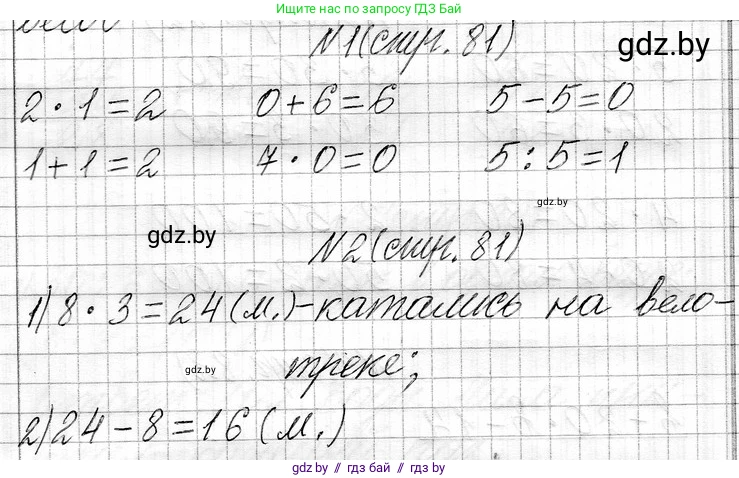 Присоединяйся к нам по запросу ГДЗ Бай
N1(стр. 81)
gdz.by
2 · 1 = 2 0 + 6 = 6 5 - 5 = 0
1 + 1 = 2 7 · 0 = 0 5 : 5 = 1
gdz.by
gdz.by
N2(стр. 81)
1) 8 · 3 = 24 (м.) - катались на вело-
треке;
gdz.by
2) 24 - 8 = 16 (м.)
gdz.by // гдз бай // gdz.by